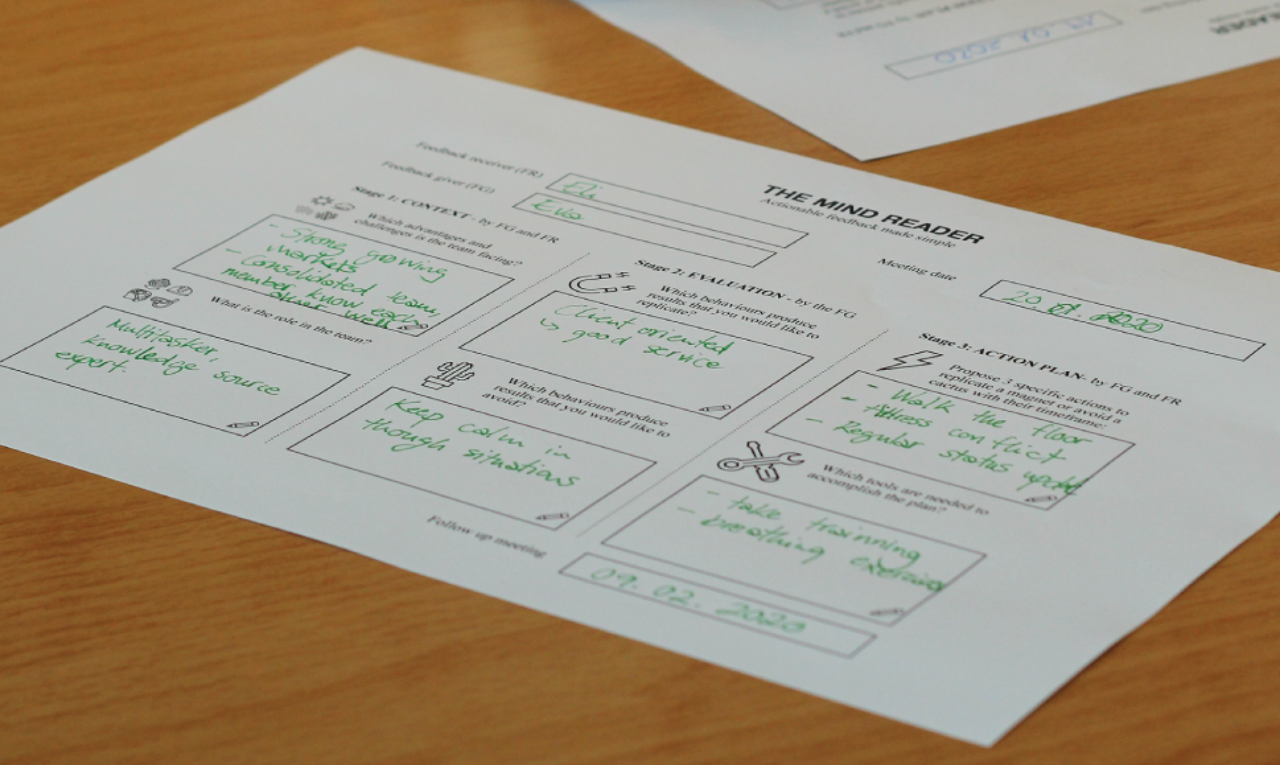 THE MIND READER
Actionable feedback made simple
Feedback receiver (FR)
Eli
Feedback giver (FG)
Eva
Meeting date
20 01. 2020
Stage 1: CONTEXT - by FG and FR
Which advantages and
challenges is the team facing?
- Strong growing
markets
- Consolidated team,
member know each
What is the role in the team?
Multitasker,
knowledge source
expert.
Stage 2: EVALUATION - by the FG
Which behaviours produce
results that you would like to
replicate?
Client oriented
↳ good service
Which behaviours produce
results that you would like to
avoid?
Keep calm in
though situations
Stage 3: ACTION PLAN- by FG and FR
Propose 3 specific actions to
replicate a magnet or avoid a
cactus with their timeframe:
- Walk the floor
- Adress conflict
- Regular status update
Which tools are needed to
accomplish the plan?
- take trainning
- breathing exercises
Follow up meeting
09. 02. 2020